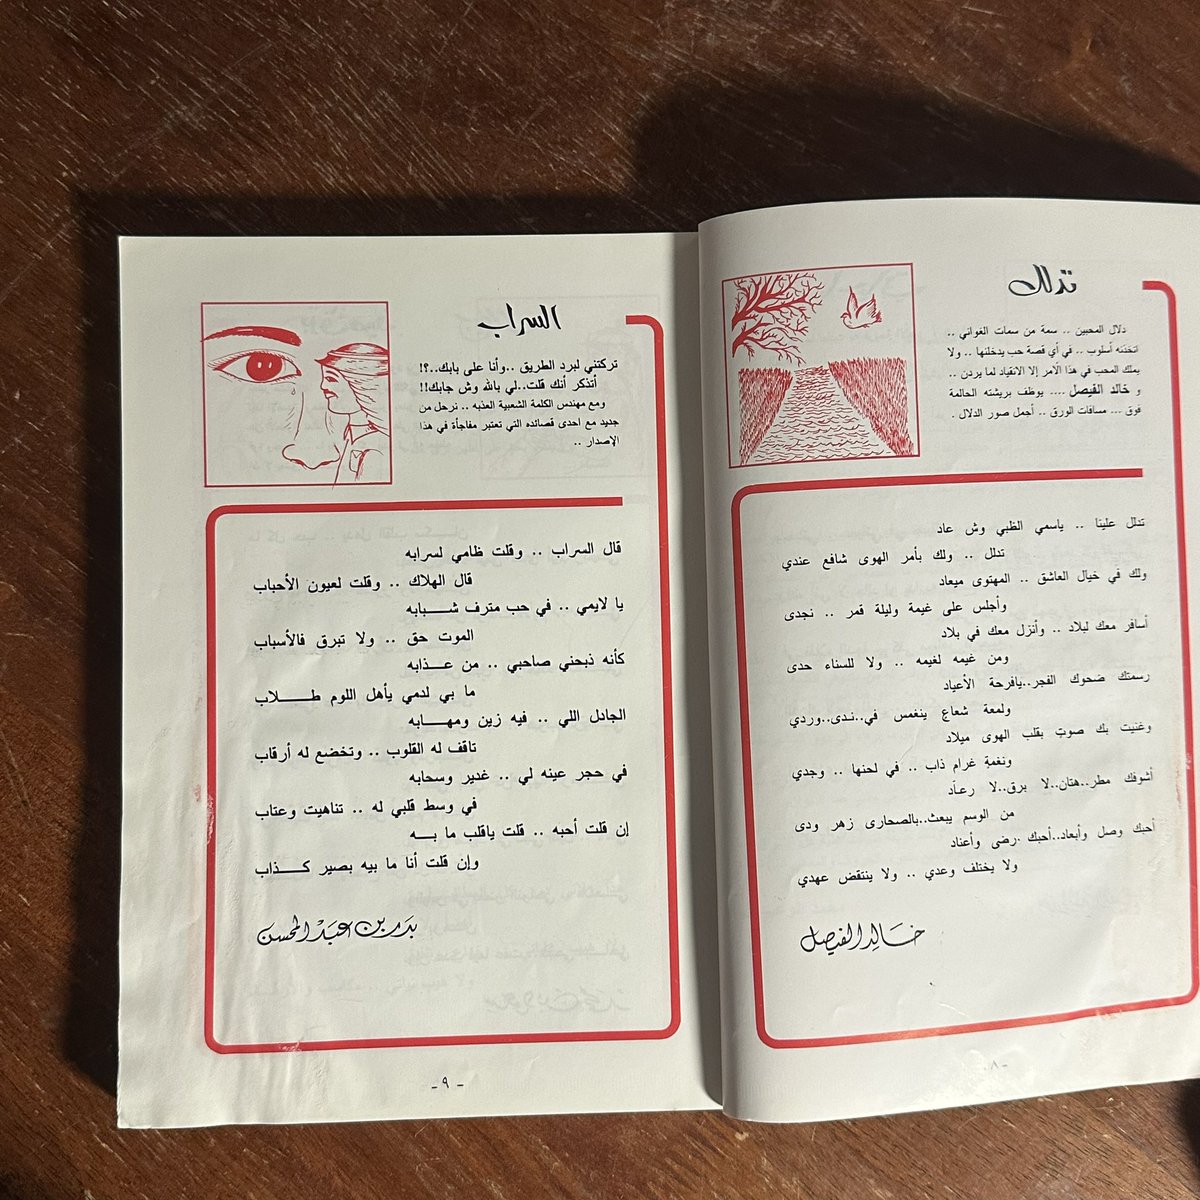 تدلل
دلال المحبين .. سمة من سمات الغواني ..
اتخذته أسلوب .. في أي قصة حب يدخلنها .. ولا
يملك المحب في هذا الامر إلا الانقياد لما يردن ..
و خالد الفيصل .... يوظف بريشته الحالمة
فوق ... مسافات الورق .. أجمل صور الدلال .
تدلل علينا .. ياسمي الظبي وش عاد
تدلل .. ولك بأمر الهوى شافع عندي
ولك في خيال العاشق .. المهتوى ميعاد
وأجلس على غيمة وليلة قمر .. نجدى
أسافر معك لبلاد .. وأنزل معك في بلاد
ومن غيمه لغيمه .. ولا للسناء حدى
رسمتك ضحوك الفجر..يافرحة الأعياد
ولمعة شعاع ينغمس في..ندى..وردي
وغنيت بك صوت بقلب الهوى ميلاد
ونغمة غرام ذاب .. في لحنها .. وجدي
أشوفك مطر..هتان..لا برق..لا رعاد
من الوسم يبعث..بالصحارى زهر ودى
أحبك وصل وأبعاد..أحبك .رضى وأعناد
ولا يختلف وعدي .. ولا ينتقض عهدي
خالد الفيصل
-٨-
السراب
تركتني لبرد الطريق ..وأنا على بابك..؟!
أتذكر أنك قلت..لي بالله وش جابك!!
ومع مهندس الكلمة الشعبية العذبه .. نرحل من
جديد مع احدى قصائده التي تعتبر مفاجأة في هذا
الإصدار ..
قال السراب .. وقلت ظامي لسرابه
قال الهلاك .. وقلت لعيون الأحباب
يا لايمي .. في حب مترف شـــبابه
الموت حق .. ولا تبرق فالأسباب
كأنه ذبحني صاحبي .. من عــذابه
ما بي لدمي يأهل اللوم طــــلاب
الجادل اللي .. فيه زين ومهـــابه
تاقف له القلوب .. وتخضع له أرقاب
في حجر عينه لي .. غدير وسحابه
في وسط قلبي له .. تناهيت وعتاب
إن قلت أحبه .. قلت ياقلب ما بـــه
وإن قلت أنا ما بيه بصير كـــذاب
بدر بن عبد المحسن
-٩-